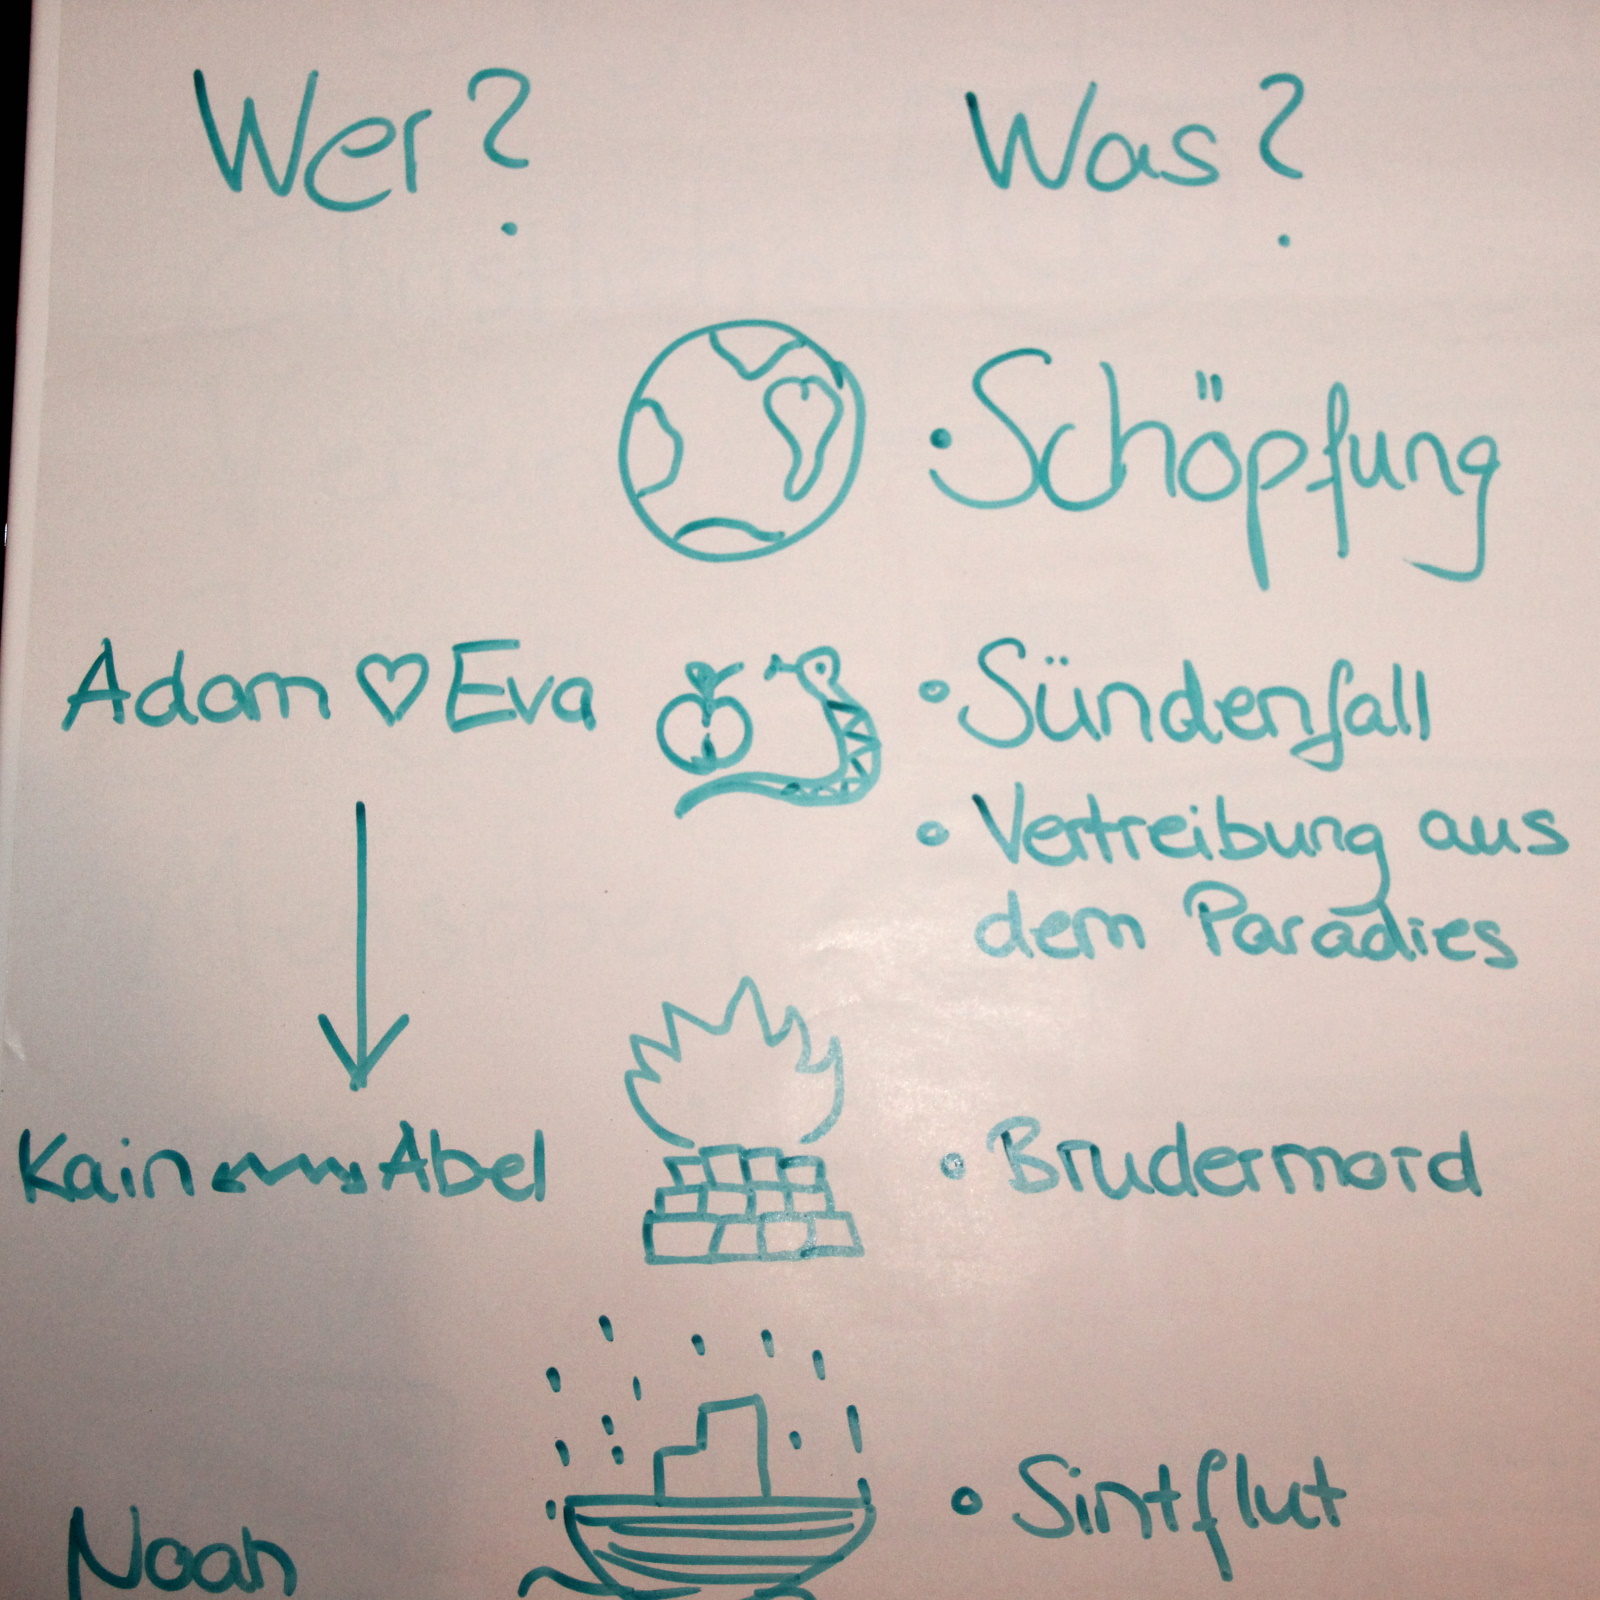 Wer? Was?
• Schöpfung
Adam ♡ Eva • Sündenfall
• Vertreibung aus
dem Paradies
Kain Abel • Brudermord
• Sintflut
Noah